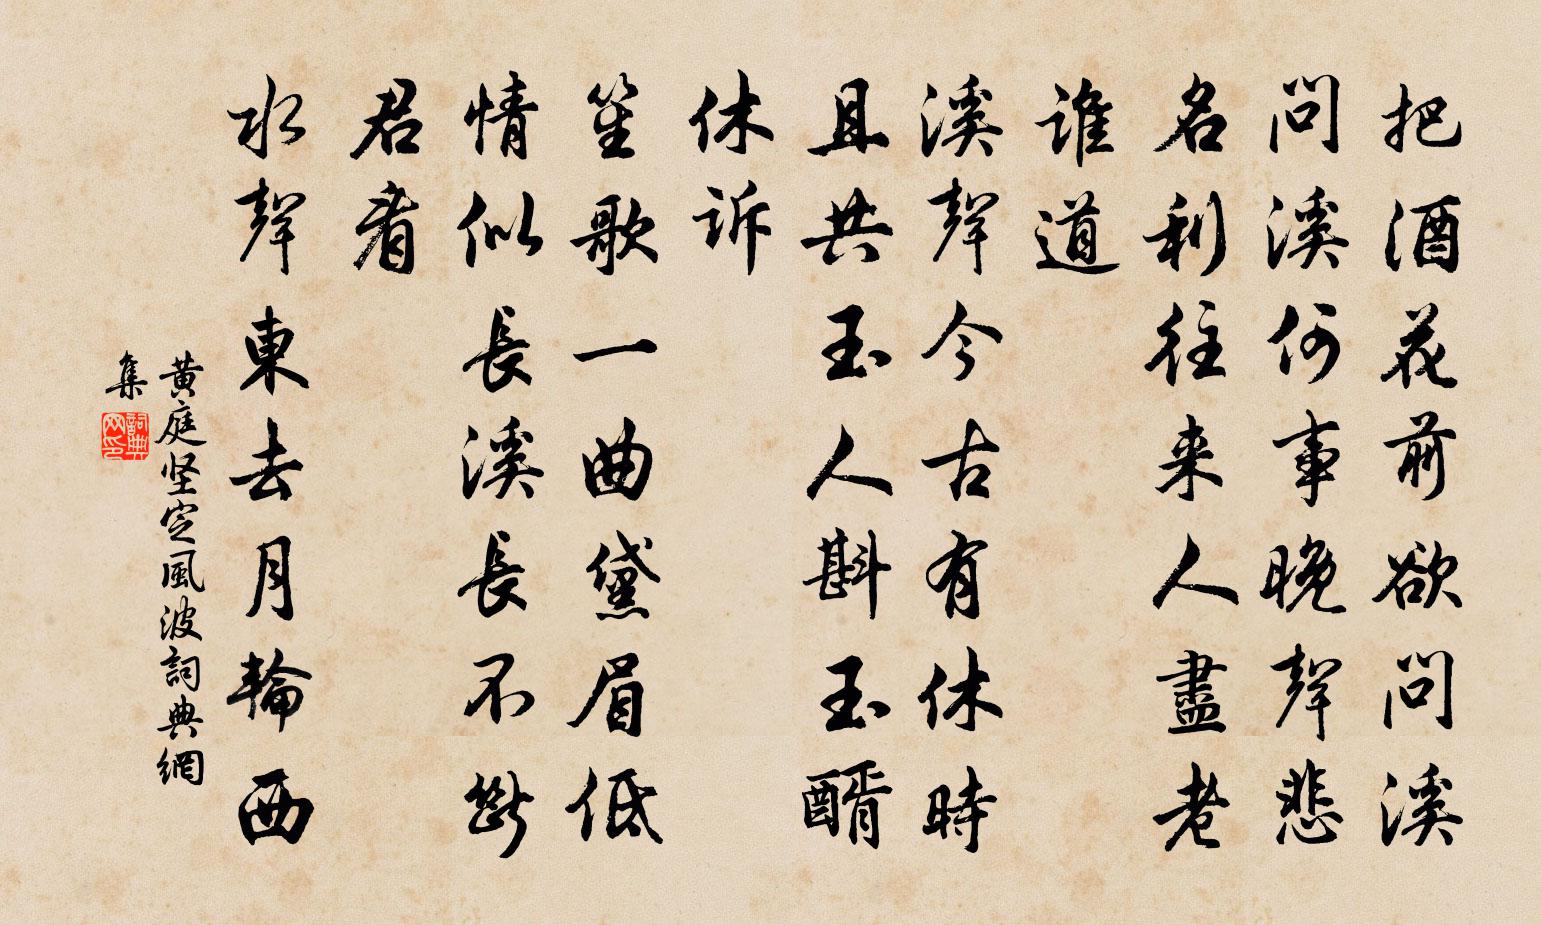 把酒花前欲問溪
問溪何事晚聲悲
名利往来人盡老
誰道
溪聲今古有休時
且共玉人斟玉醑
休訴
笙歌一曲黛眉低
情似長溪長不斷
君看
水聲東去月輪西
黄庭坚定風波詞典網
集
詞典
网印